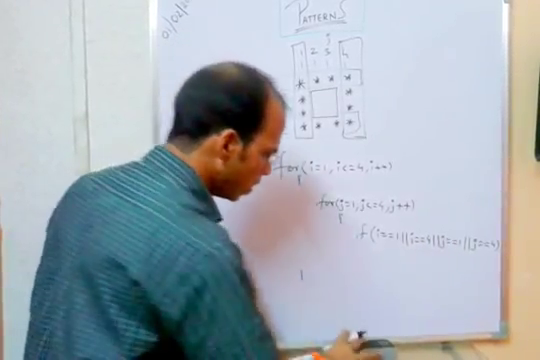 01/02/
PATTERNS
j
1 2 3 4
1 1 1
* * * *
* *
* *
* * * *
for(i=1, i<=4, i++)
{
for(j=1, j<=4, j++)
{
if(i==1||i==4||j==1||j==4)